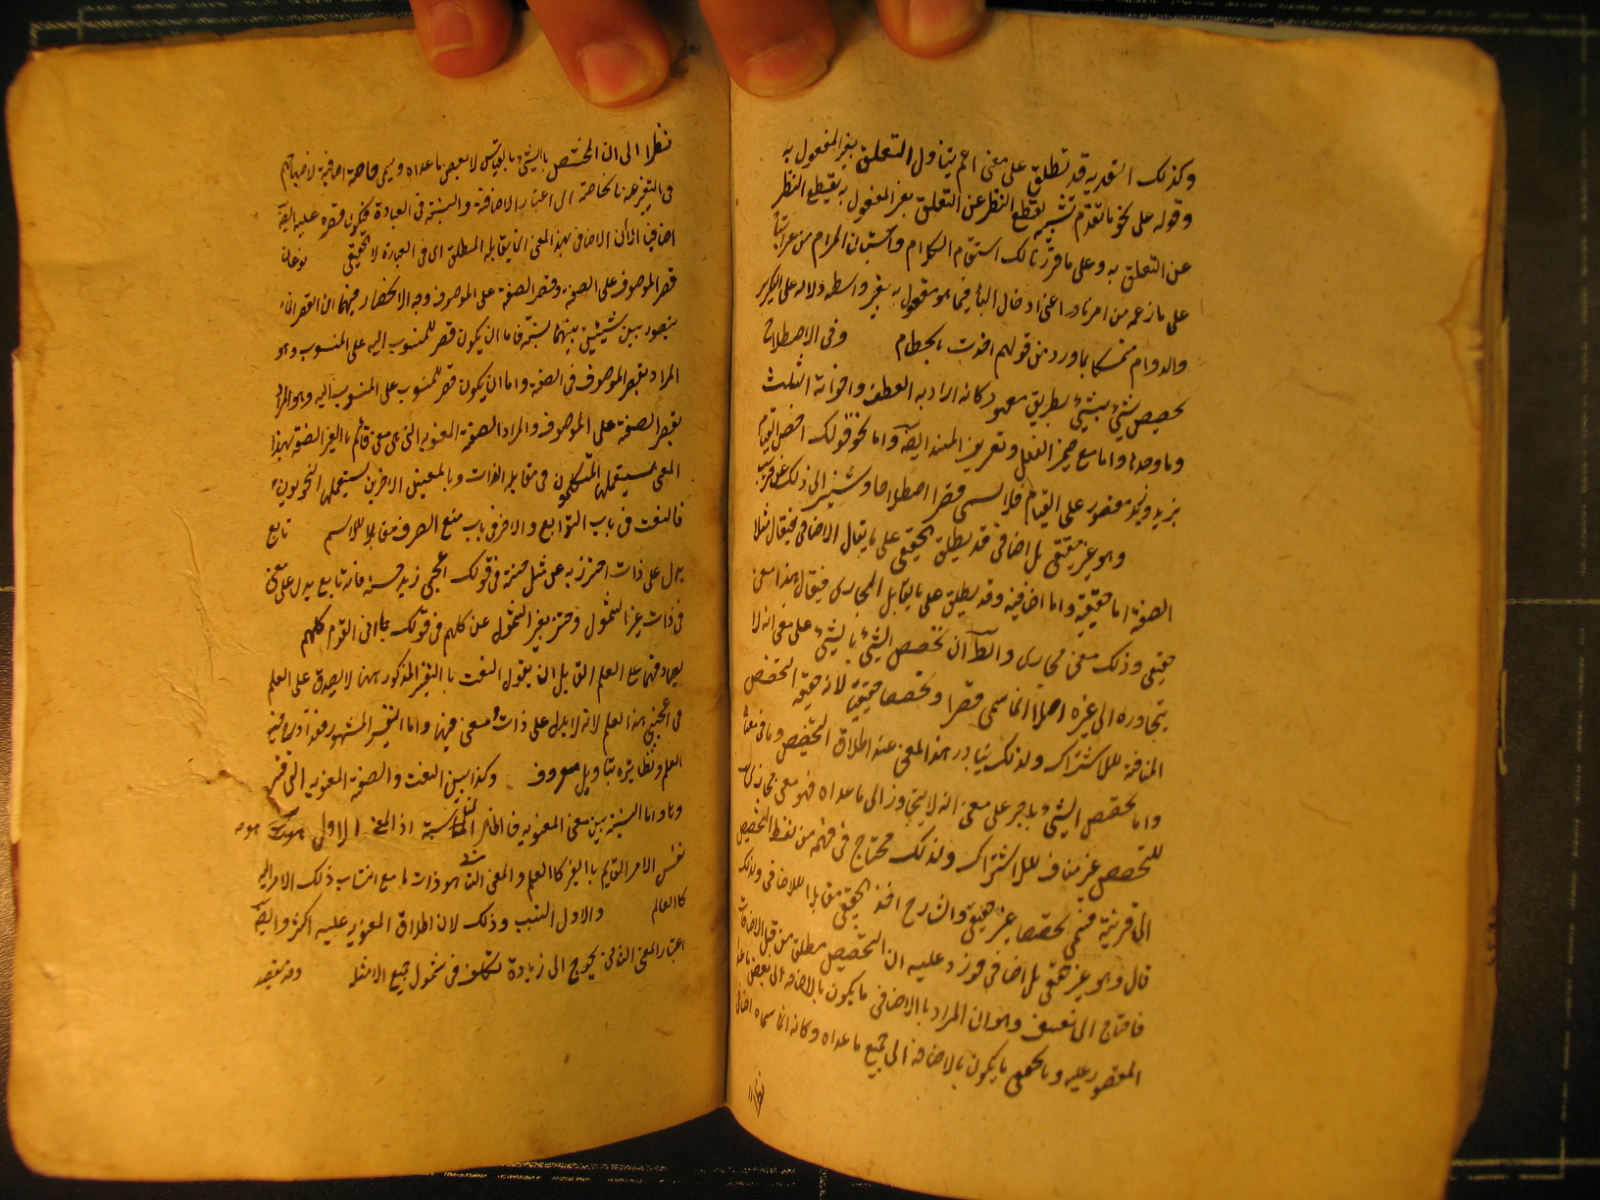 وكذلك التعدية قد تطلق على معنى اعم يتناول التعلق بغير المفعول به
وقوله على نحو ما تقدم تشبيه لقطع النظر عن التعلق بغير المفعول به بقطع النظر
عن التعلق به وعلى ما قررنا لك استقام الكلام واستبان المرام من غير
على ما زعمه من امر نادر اعنى ادخال الباء فيما هو مفعول به بغير واسطة دلالة على التكرير
والدوام متمسكا بما ورد من قولهم اخذت بالخطام وفى الاصطلاح
تخصيص شئ بشئ بطريق معهود كانه اراد به العطف واخواته الثلث
وما وحدها واما مع ضمير الفصل وتعريف المسند ايضا واما نحو قولك اختص القيام
بزيد وزيد مقصور على القيام فلا يسمى قصرا اصطلاحا وستشير الى ذلك عن قريب
وهو غير حقيقى بل اضافى قد يطلق الحقيقى على ما يقابل الاضافى فيقال مثلا
الصفة اما حقيقية واما اضافية وقد يطلق على ما يقابل المجازى فيقال هذا معنى
حقيقى وذلك معنى مجازى والظ ان تخصيص الشئ بالشئ على معنى انه لا
يتجاوزه الى غيره اصلا انما سمى قصرا وتخصيصا حقيقيا لانه حقيقة التخصيص
المنافية للاشتراك ولذلك يتبادر هذا المعنى عند اطلاق التخصيص وما فى معناه
واما تخصيص الشئ باخر على معنى انه لا يتجاوز الى ما عداه فهو معنى مجازى
للتخصيص غير مناف للاشتراك ولذلك يحتاج فى فهمه من لفظ التخصيص
الى قرينة فسمى تخصيصا غير حقيقى والشارح اخذ الحقيقى مقابلا للاضافى ولذلك
قال وهو غير حقيقى بل اضافى فورد عليه ان التخصيص مطلق من قبيل الاضافات
فاحتاج الى تعسف وهو ان المراد بالاضافى ما يكون بالاضافة الى بعض ما عدا
المقصور عليه وبالحقيقى ما يكون بالاضافة الى جميع ما عداه وكانه انما سماه اضافى
نظرا
نظرا الى ان المختص بالشئ بالقياس لا بعض ما عداه ويسمى خاصة اضافية لاحتياجهم
فى التعبير عنه بالخاصة الى اعتبار الاضافة والنسبة فى العبارة فيكون قصره عليه ايضا
اضافيا لان الاضافى بهذا المعنى انما يقابل المطلق اى فى العبارة لا الحقيقى نوعان
قصر الموصوف على الصفة وقصر الصفة على الموصوف وجه الانحصار فيهما ان القصر انما
يتصور بين شيئين بينهما نسبة فاما ان يكون قصر المنسوب اليه على المنسوب وهو
المراد بقصر الموصوف فى الصفة واما ان يكون قصر المنسوب على المنسوب اليه وهو المراد
بقصر الصفة على الموصوف والمراد الصفة المعنوية التى هى معنى قائم بالغير الصفة بهذا
المعنى يستعملها المتكلمون فى مقابلة الذات وبالمعنيين الاخرين يستعملها النحويون
فالنعت فى باب التوابع والاخر فى باب منع الصرف مقابلا للاسم تابع
يدل على ذات احترز به عن مثل حسنه فى قولك اعجبنى زيد حسنه فانه تابع يدل على معنى
فى ذات غير الشمول واحترز بغير الشمول عن كلهم فى قولك جاءنى القوم كلهم
لتصادقهما على العلم لقائل ان يقول النعت بالتفسير المذكور ههنا لا يصدق على العلم
فى اعجبنى هذا العلم لانه لا يدل على ذات ومعنى فيها واما التفسير المشهور فقد اول فيه
العلم ونظائره بتاويل معروف وكذا بين النعت والصفة المعنوية التى فسر
وما واما النسبة بين معنى المعنوية فالظ المباينة اذ المعنى الاول هو
نفس الامر القائم بالغير كالعلم والمعنى الثانى هو ذات ما مع انتساب ذلك الامر اليه
كالعالم والاول انسب وذلك لان اطلاق المعنوية عليه اكثر وايضا
اعتبار المعنى الثانى يحوج الى زيادة تكلف فى شمول جميع الامثلة